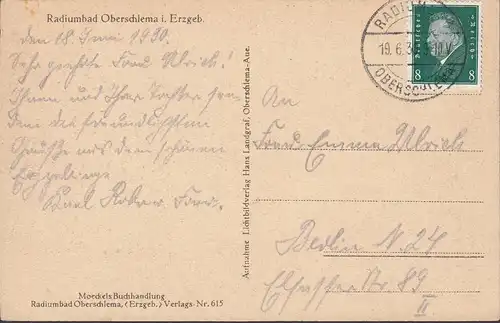 Radiumbad Oberschlema i. Erzgeb.
den 18. Juni 1930.
Sehr geehrte Frau Ulrich!
Ihnen und Ihrer Tochter sen-
den die freundlichsten
Grüße aus dem schönen
Erzgebirge
Karl u. Frau.
Moeckels Buchhandlung
Radiumbad Oberschlema, (Erzgeb.) Verlags-Nr. 615
Aufnahme Lichtbildverlag Hans Landgraf, Oberschlema-Aue.
RADIUMBAD
19.6.30
OBERSCHLEMA
Deutsches Reich
8 8
An
Frau Emma Ulrich
Berlin N. 24
Elsasser Str. 89
II